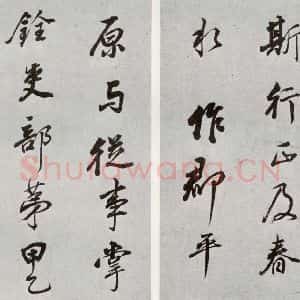 斯行正及春
作郡平
原与從事掌
銓吏部苐甲乙
Shufawang.CN